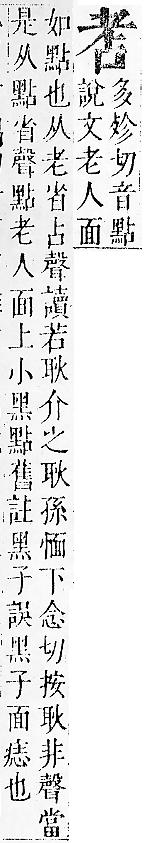 𦒻
多殄切音點
說文老人面
如點也从老省占聲讀若耿介之耿孫愐下念切按耿非聲當
是从點省聲點老人面上小黑點舊註黑子誤黑子面痣也